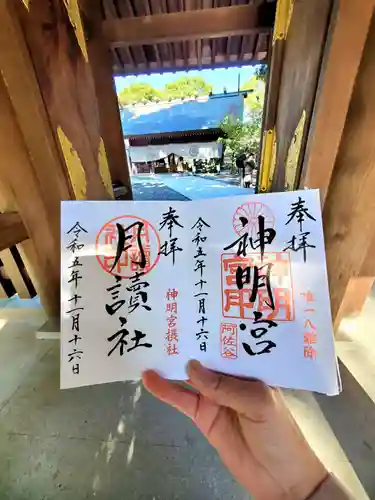 奉拝
神明宮
神明宮
阿佐谷
唯一八難除
令和五年十一月十六日
奉拝
月讀社
神明宮摂社
令和五年十一月十六日